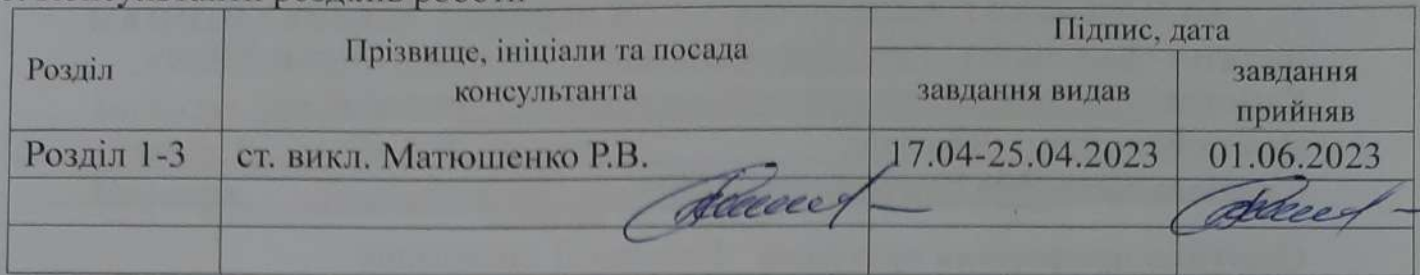 Розділ
Прізвище, ініціали та посада
консультанта
Підпис, дата
завдання видав
завдання
прийняв
Розділ 1-3
ст. викл. Матюшенко Р.В.
17.04-25.04.2023
01.06.2023